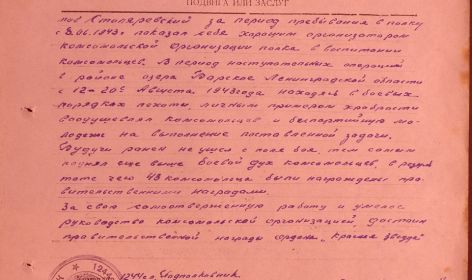 ПОДВИГА ИЛИ ЗАСЛУГ
тов Столяревский за период пребывания в полку
с 8.06.1943г показал себе хорошим организатором
комсомольской организации полка в воспитании
комсомольцев. В период наступательных операций
в районе озера Барское Ленинградской области
с 12-20го Августа 1943 года находясь в боевых
порядках пехоты, личным примером храбрости
воодушевлял комсомольцев и беспартийную мо-
лодежь на выполнение поставленной задачи.
Будучи ранен не ушел с поля боя, тем самым
поднял еще выше боевой дух комсомольцев, в резуль
тате чего 43 комсомольца были награждены пра-
вительственными наградами.
За свою самоотверженную работу и умелое
руководство комсомольской организацией, достоин
правительственной награды ордена „Красная Звезда"
1944
1244 сп. Подполковник